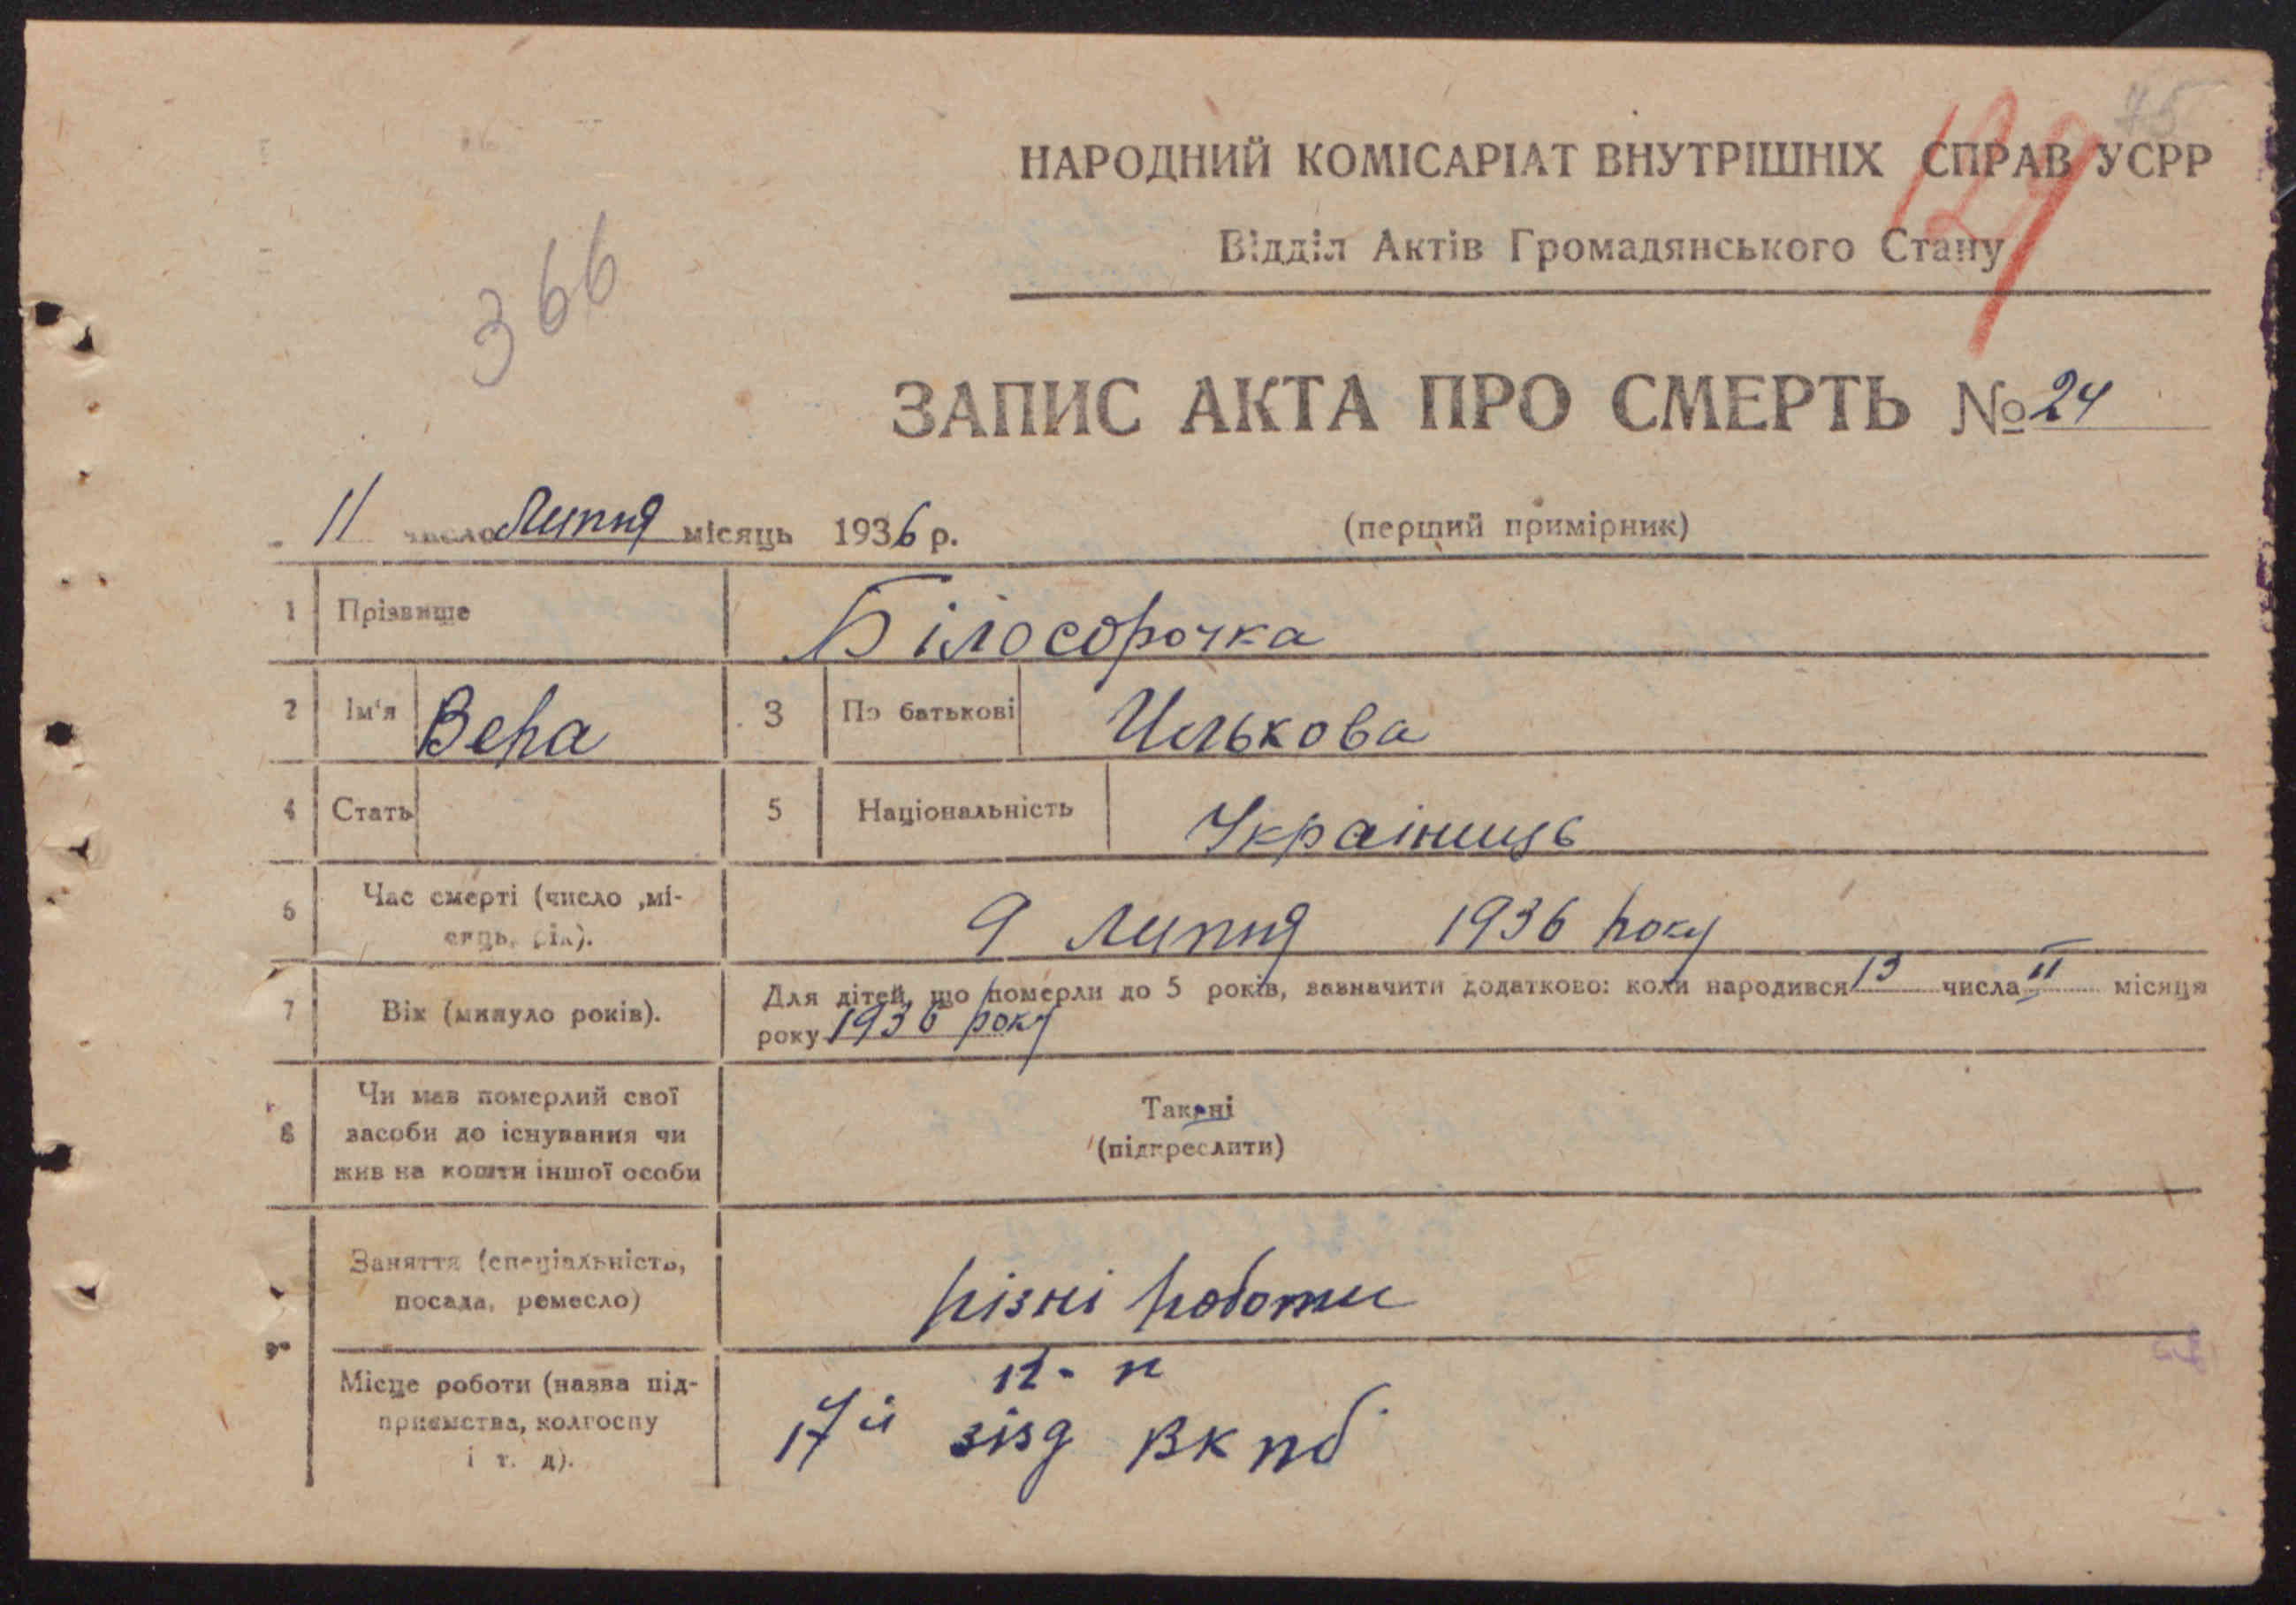 75
129
НАРОДНИЙ КОМІСАРІАТ ВНУТРІШНІХ СПРАВ УСРР
Відділ Актів Громадянського Стану
366
ЗАПИС АКТА ПРО СМЕРТЬ № 24
11 число Липня місяць 1936 р. (перший примірник)
1 Прізвище Білосорочка
2 Ім'я Вера 3 По батькові Илькова
4 Стать 5 Національність Украінець
6 Час смерті (число ,мі-
сяць, рік). 9 Липня 1936 року
7 Вік (минуло років). Для дітей, що померли до 5 років, зазначити додатково: коли народився 13 числа II місяця
року 1936 року
8 Чи мав померлий свої
засоби до існування чи
жив на кошти іншої особи
Так, ні
(підкреслити)
9 Заняття (спеціальність,
посада, ремесло) різні роботи
Місце роботи (назва під-
приємства, колгоспу
і т. д).
17й зізд ВКпб